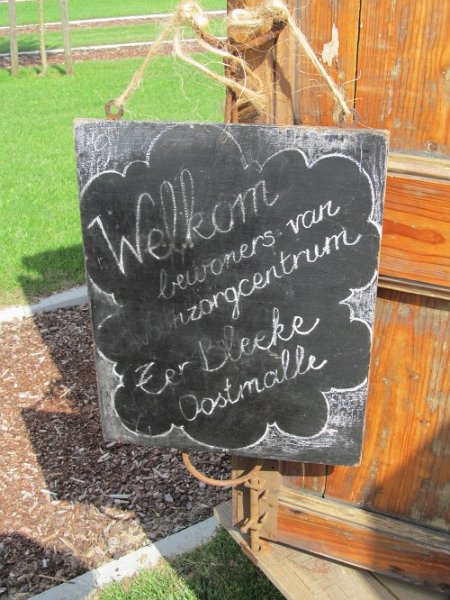 Welkom
bewoners van
woonzorgcentrum
Ter Bleeke
Oostmalle